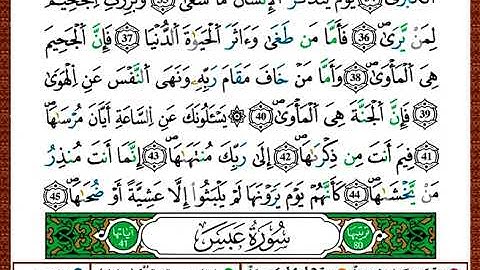 يَوْمَ يَتَذَكَّرُ الْإِنسَٰنُ مَا سَعَىٰ وَبُرِّزَتِ الْجَحِيمُ
لِمَنْ يَّرَىٰ 36 فَأَمَّا مَن طَغَىٰ وَءَاثَرَ الْحَيَوٰةَ الدُّنْيَا 37 فَإِنَّ الْجَحِيمَ
هِيَ الْمَأْوَىٰ 38 وَأَمَّا مَنْ خَافَ مَقَامَ رَبِّهِۦ وَنَهَى النَّفْسَ عَنِ الْهَوَىٰ
39 فَإِنَّ الْجَنَّةَ هِيَ الْمَأْوَىٰ 40 ۞ يَسْـَٔلُونَكَ عَنِ السَّاعَةِ أَيَّانَ مُرْسَىٰهَا
41 فِيمَ أَنتَ مِن ذِكْرَىٰهَا 42 إِلَىٰ رَبِّكَ مُنتَهَىٰهَا 43 إِنَّمَا أَنتَ مُنذِرُ
مَنْ يَّخْشَىٰهَا 44 كَأَنَّهُمْ يَوْمَ يَرَوْنَهَا لَمْ يَلْبَثُوا إِلَّا عَشِيَّةً أَوْ ضُحَىٰهَا 45
ترتيبها 80 سُورَةُ عَبَسَ آياتها 41